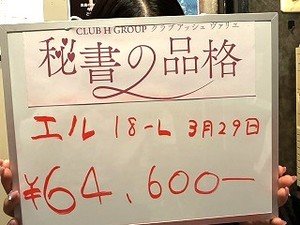 CLUB H GROUP クラブアッシュ ヴァリエ
秘書の品格
エル 18-L 3月29日
¥64,600-